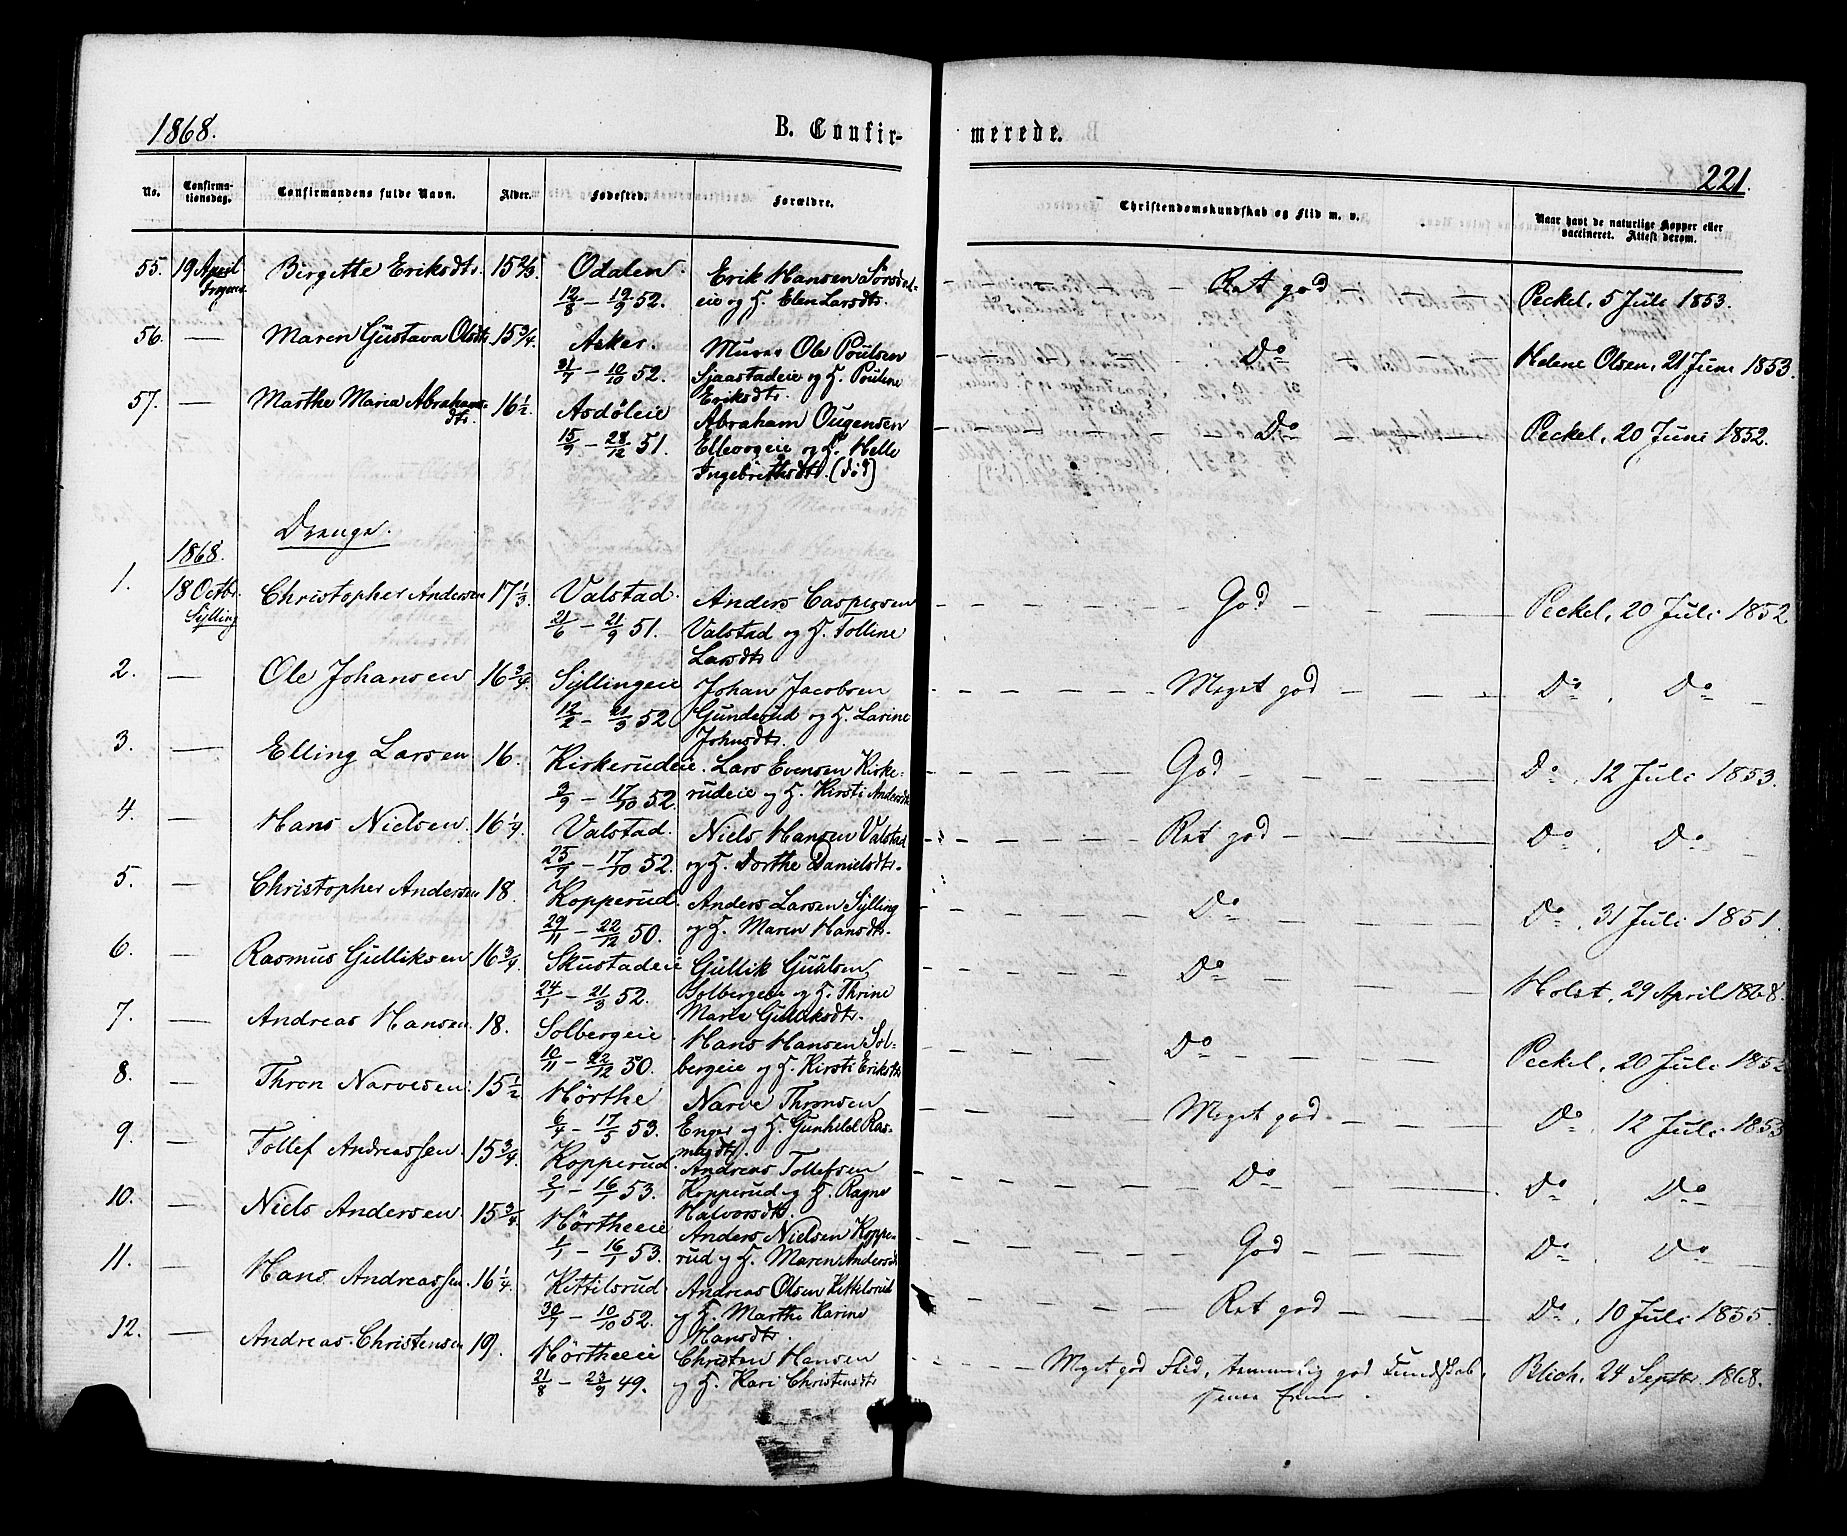 1868.
B. Confir-
merede.
221.
No.
Confirma-
tionsdag.
Confirmandens fulde Navn.
Alder.
Fødested.
Forældre.
Christendomskundskab og Flid m. v.
Naar havt de naturlige Kopper eller
vaccineret. Attest derom.
55. 19 April Birgitte Eriksdtr. 15 2/3 Odalen. Erik Hansen Sørsdal- — Ret god — Peckel, 5 Juli 1853.
12/8 — 19/9 52. eie og H. Elen Larsdtr.
56. — Maren Gustava Olsdtr 15 3/4 Asker. Murer Ole Poulsen — Do — Helene Olsen, 21 Juni 1853.
31/7 — 10/10 52. Sjaastadeie og H. Pouline
Eriksdtr.
57. — Marthe Maria Abrahams- 16 1/2. Asdøleie Abraham Ougensen — Do — Peckel, 20 Juni 1852.
dtr. 15/9 — 28/12 51. Ellevogeie og H. Helle
Ingebrettsdtr. (död)
Drenge.
1868.
1. 18 Octbr. Christopher Andersen 17 1/3 Valstad. Anders Caspersen — God — Peckel, 20 Juli 1852
Sylling 21/6 — 21/9 51. Valstad og H. Tolline
Larsdtr
2. — Ole Johansen 16 3/4. Syllingeie Johan Jacobsen — Meget god — Do, Do —
12/2 — 21/3 52 Gunderud og H. Larine
Johnsdtr.
3. — Elling Larsen 16. Kirkerudeie. Lars Evensen Kirke- — God — Do, 12 Juli 1853.
3/9 — 17/10 52. rudeie og H. Kirsti Andersdtr
4. — Hans Nielsen. 16 1/4. Valstad. Niels Hansen Valstad — Ret god — Do, Do —
25/7 — 17/10 52. og H. Dorthe Danielsdtr.
5. — Christopher Andersen 18. Kopperud. Anders Larsen Sylling — Do — Do, 31 Juli 1851.
29/11 — 22/12 50. og H. Maren Hansdtr.
6. — Rasmus Gulliksen 16 3/4. Skustadeie Gullik — Do — Holst, 29 April 1868.
24/1 — 21/3 52. Solbergeie og H. Thrine
Marie Gulliksdtr.
7. — Andreas Hansen. 18. Solbergeie Hans Hansen Sol- — Do — Peckel, 20 Juli 1852
10/11 — 22/12 50. bergeie og H. Kirsti Eriksdtr
8. — Thron Narvesen. 15 1/2 Hörthe Narve Thronsen — Meget god — Do, 12 Juli 1853
6/4 — 17/5 53. Enger og H. Gunhild Ras-
musdtr.
9. — Tollef Andreassen. 15 3/4. Kopperud. Andreas Tollefsen — Do — Do, Do —
2/1 — 16/1 53. Kopperud og H. Ragne
Halvorsdtr.
10. — Niels Andersen. 15 3/4. Hörtheeie Anders Nielsen Koppe- — God — Do, Do —
1/1 — 16/1 53. rud og H. Maren Andersdtr
11. — Hans Andreassen 16 1/4. Kittilsrud. Andreas Olsen Kittilsrud — Ret god — Do, 10 Juli 1855.
30/7 — 10/10 52. og H. Marthe Karine
Hansdtr.
12. — Andreas Christensen 19. Hörtheeie Christen Hansen — Meget god Flid, temmelig god Kundskab, Blich, 24 Septbr. 1868.
21/8 — 23/9 49. og H. Kari Christensdtr